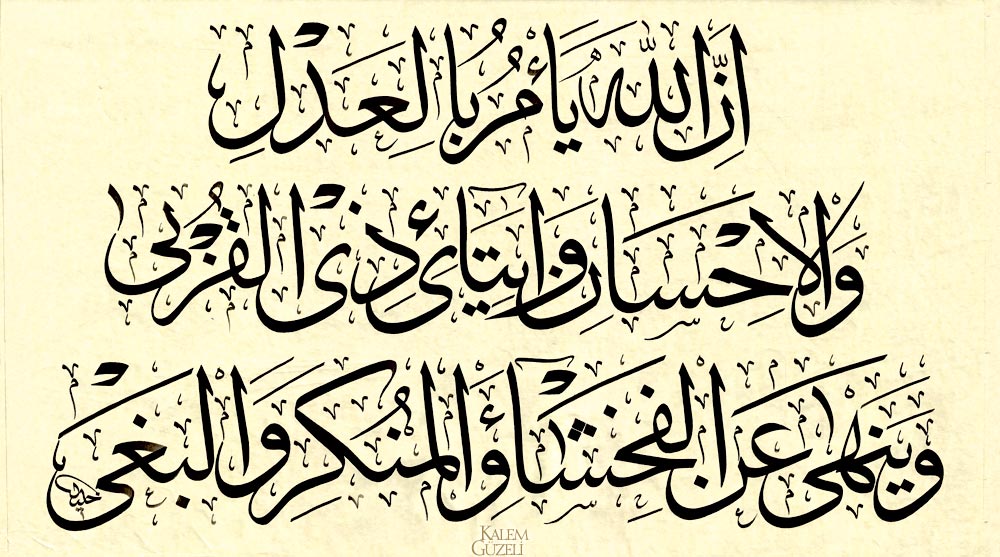 اِنَّ اللّٰهَ يَأْمُرُ بِالْعَدْلِ
وَالْاِحْسَانِ وَاِيتَٓائِ ذِى الْقُرْبٰى
وَيَنْهٰى عَنِ الْفَحْشَٓاءِ وَالْمُنْكَرِ وَالْبَغْىِ
KALEM
GÜZELİ